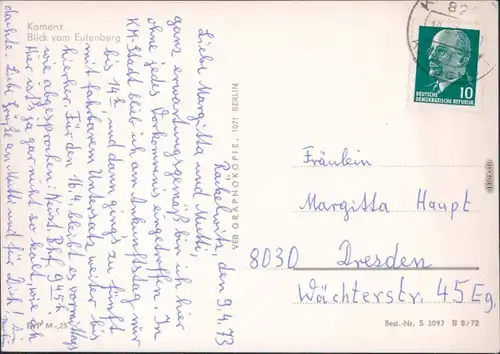 Kamenz
Blick vom Eulenberg
Räckelwitz, den 9.4.73
Liebe Margitta und Mutti,
ganz erwartungsgemäß bin ich hier
ohne jedes Vorkommnis eingetroffen. In
KM-Stadt blieb ich am Ankunftstag nur
bis 14h, und dann gings zu fünft
mit fahrbarem Untersatz weiter bis
hierher. Für den 16.4. bleibt es vormittags
wie abgesprochen: Neust. Bhf 9 45h.
Hier ist's ja gar nicht so kalt, wie ich
dachte. Liebe Grüße an Mutti und für Dich!
EVP M -,25
VEB GRAPHOKOPIE, 1071 BERLIN
DEUTSCHE
DEMOKRATISCHE REPUBLIK
10
Fräulein
Margitta Haupt
8030 Dresden
Wächterstr. 45 Eg.
Best.-Nr. S 3097 B 8/72